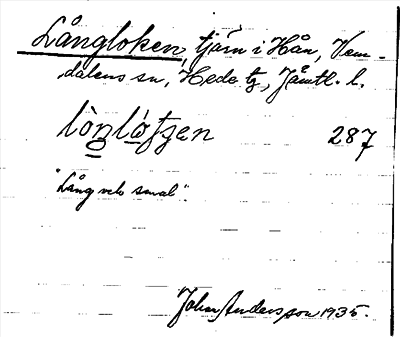 Långloken, tjärn i Hån, Vem-
dalens sn, Hede tg, Jämtl. l.
287
"Lång och smal".
John Andersson 1935.